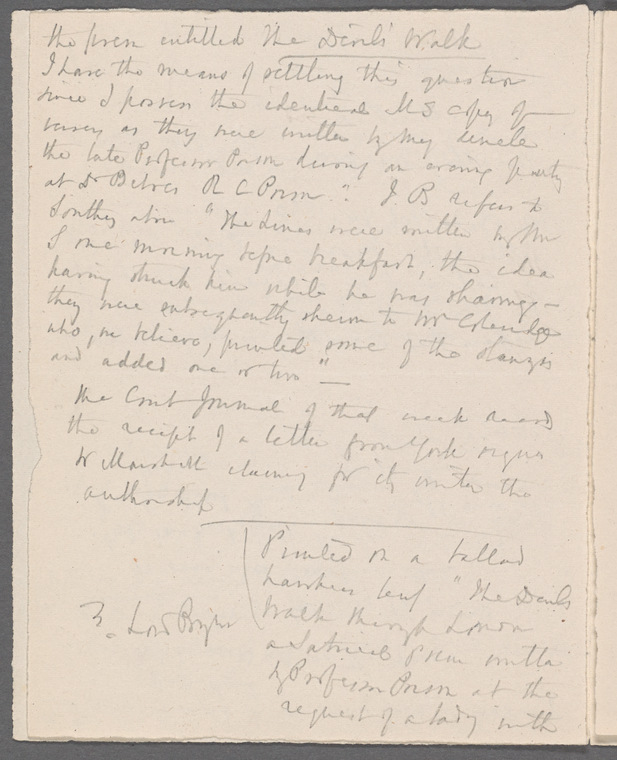 the poem entitled The Devils Walk
I have the means of settling this question
since I possess the identical MS copy of
verses as they were written by my uncle
the late Professor Porson during an evening party
at Dr Beloes R C Porson". J. B refers to
Southey also "The lines were written by Mr
S one morning before breakfast, the idea
having struck him while he was shaving –
they were subsequently shewn to Mr Coleridge
who, we believe, pointed some of the stanzas
and added one or two" –
The Court Journal of that week record
the receipt of a letter from York signed
W Marshall claiming for its writer the
authorship
Printed on a ballad
hawkers leaf "The Devils
Walk through London
a Satirical poem written
by Professor Porson at the
request of a lady with
3. Lord Byron